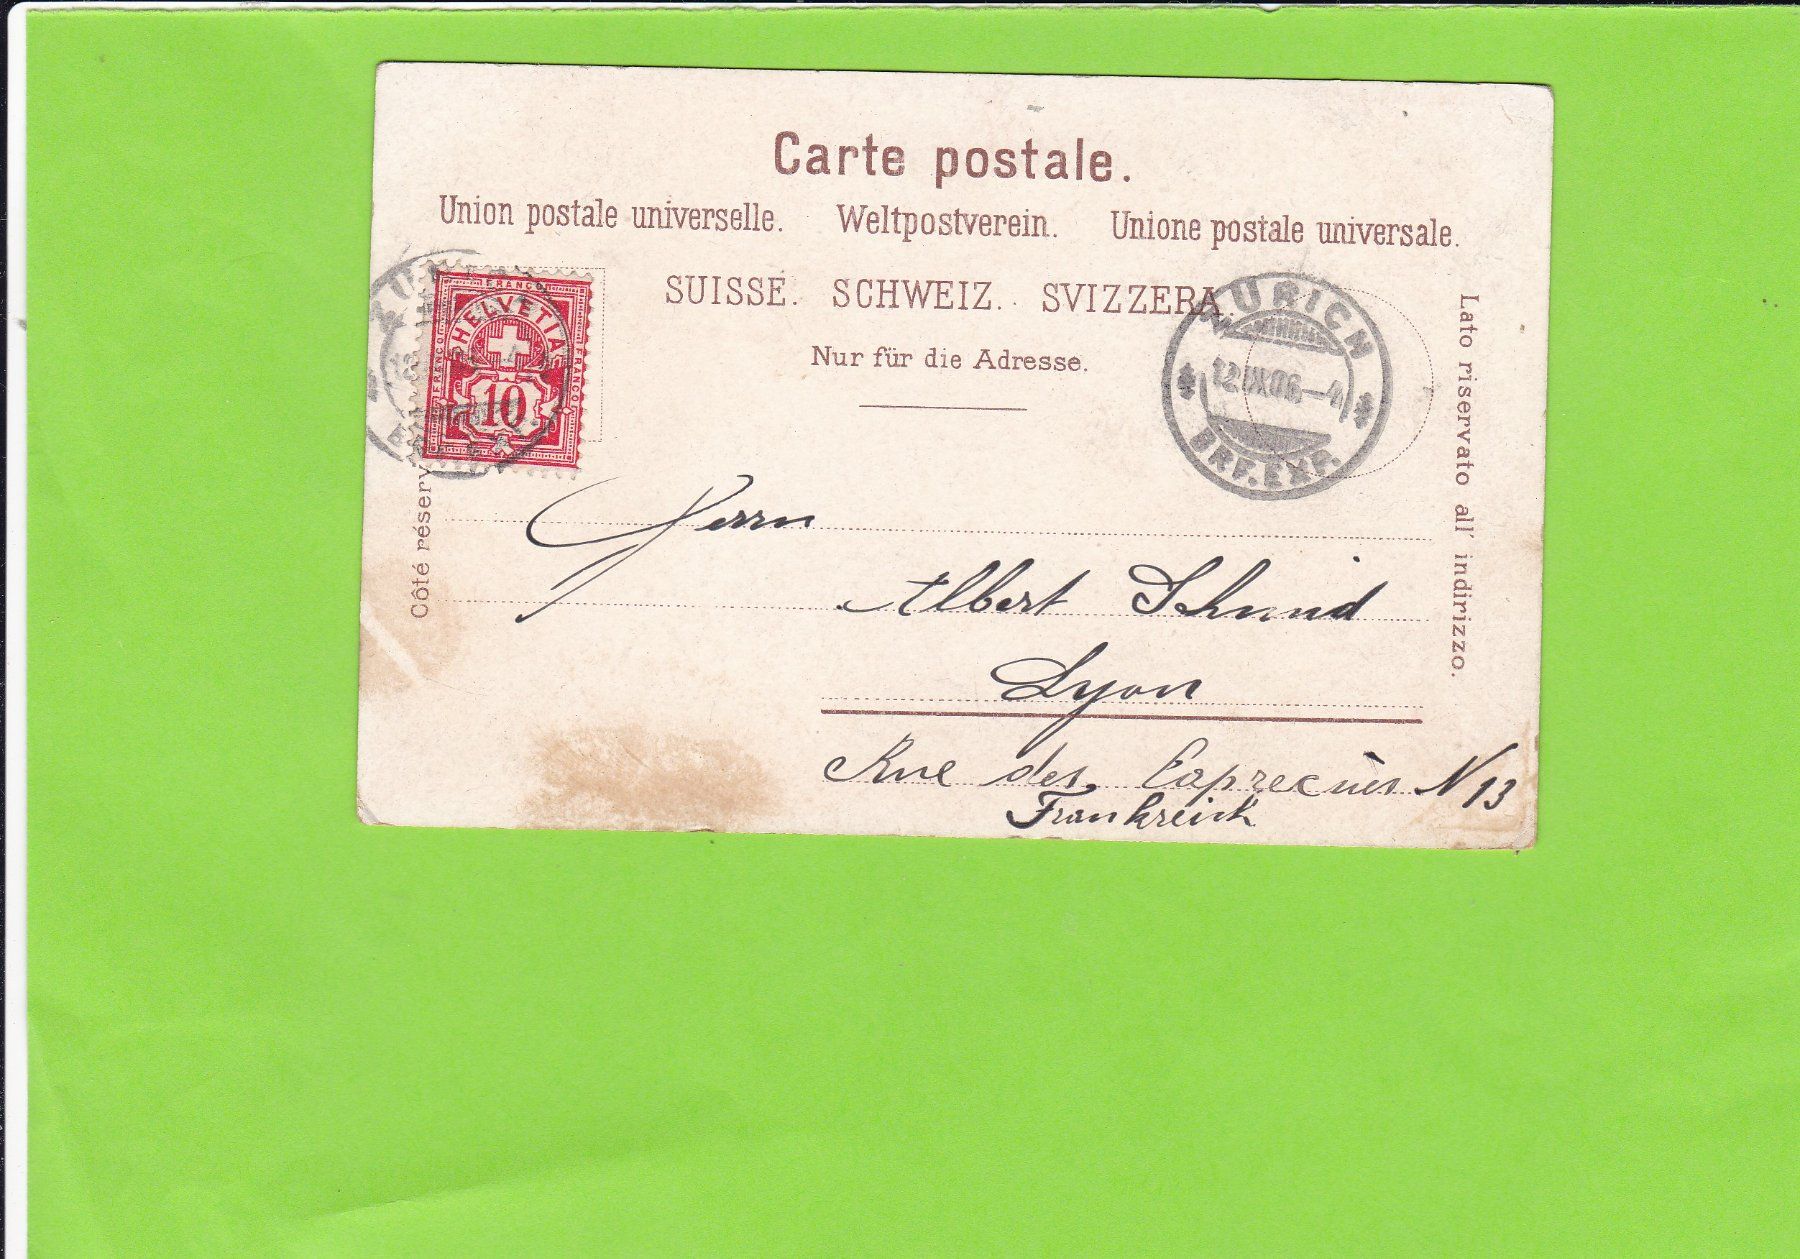 Carte postale.
Union postale universelle. Weltpostverein. Unione postale universale.
SUISSE. SCHWEIZ. SVIZZERA.
Nur für die Adresse.
FRANCO
FRANCO
HELVETIA
FRANCO
10
ZURICH
12 IX 06–4
BRF. EXP.
Côté réserv
Lato riservato all' indirizzo.
Herrn
Albert Schmid
Lyon
Rue des N 13
Frankreich